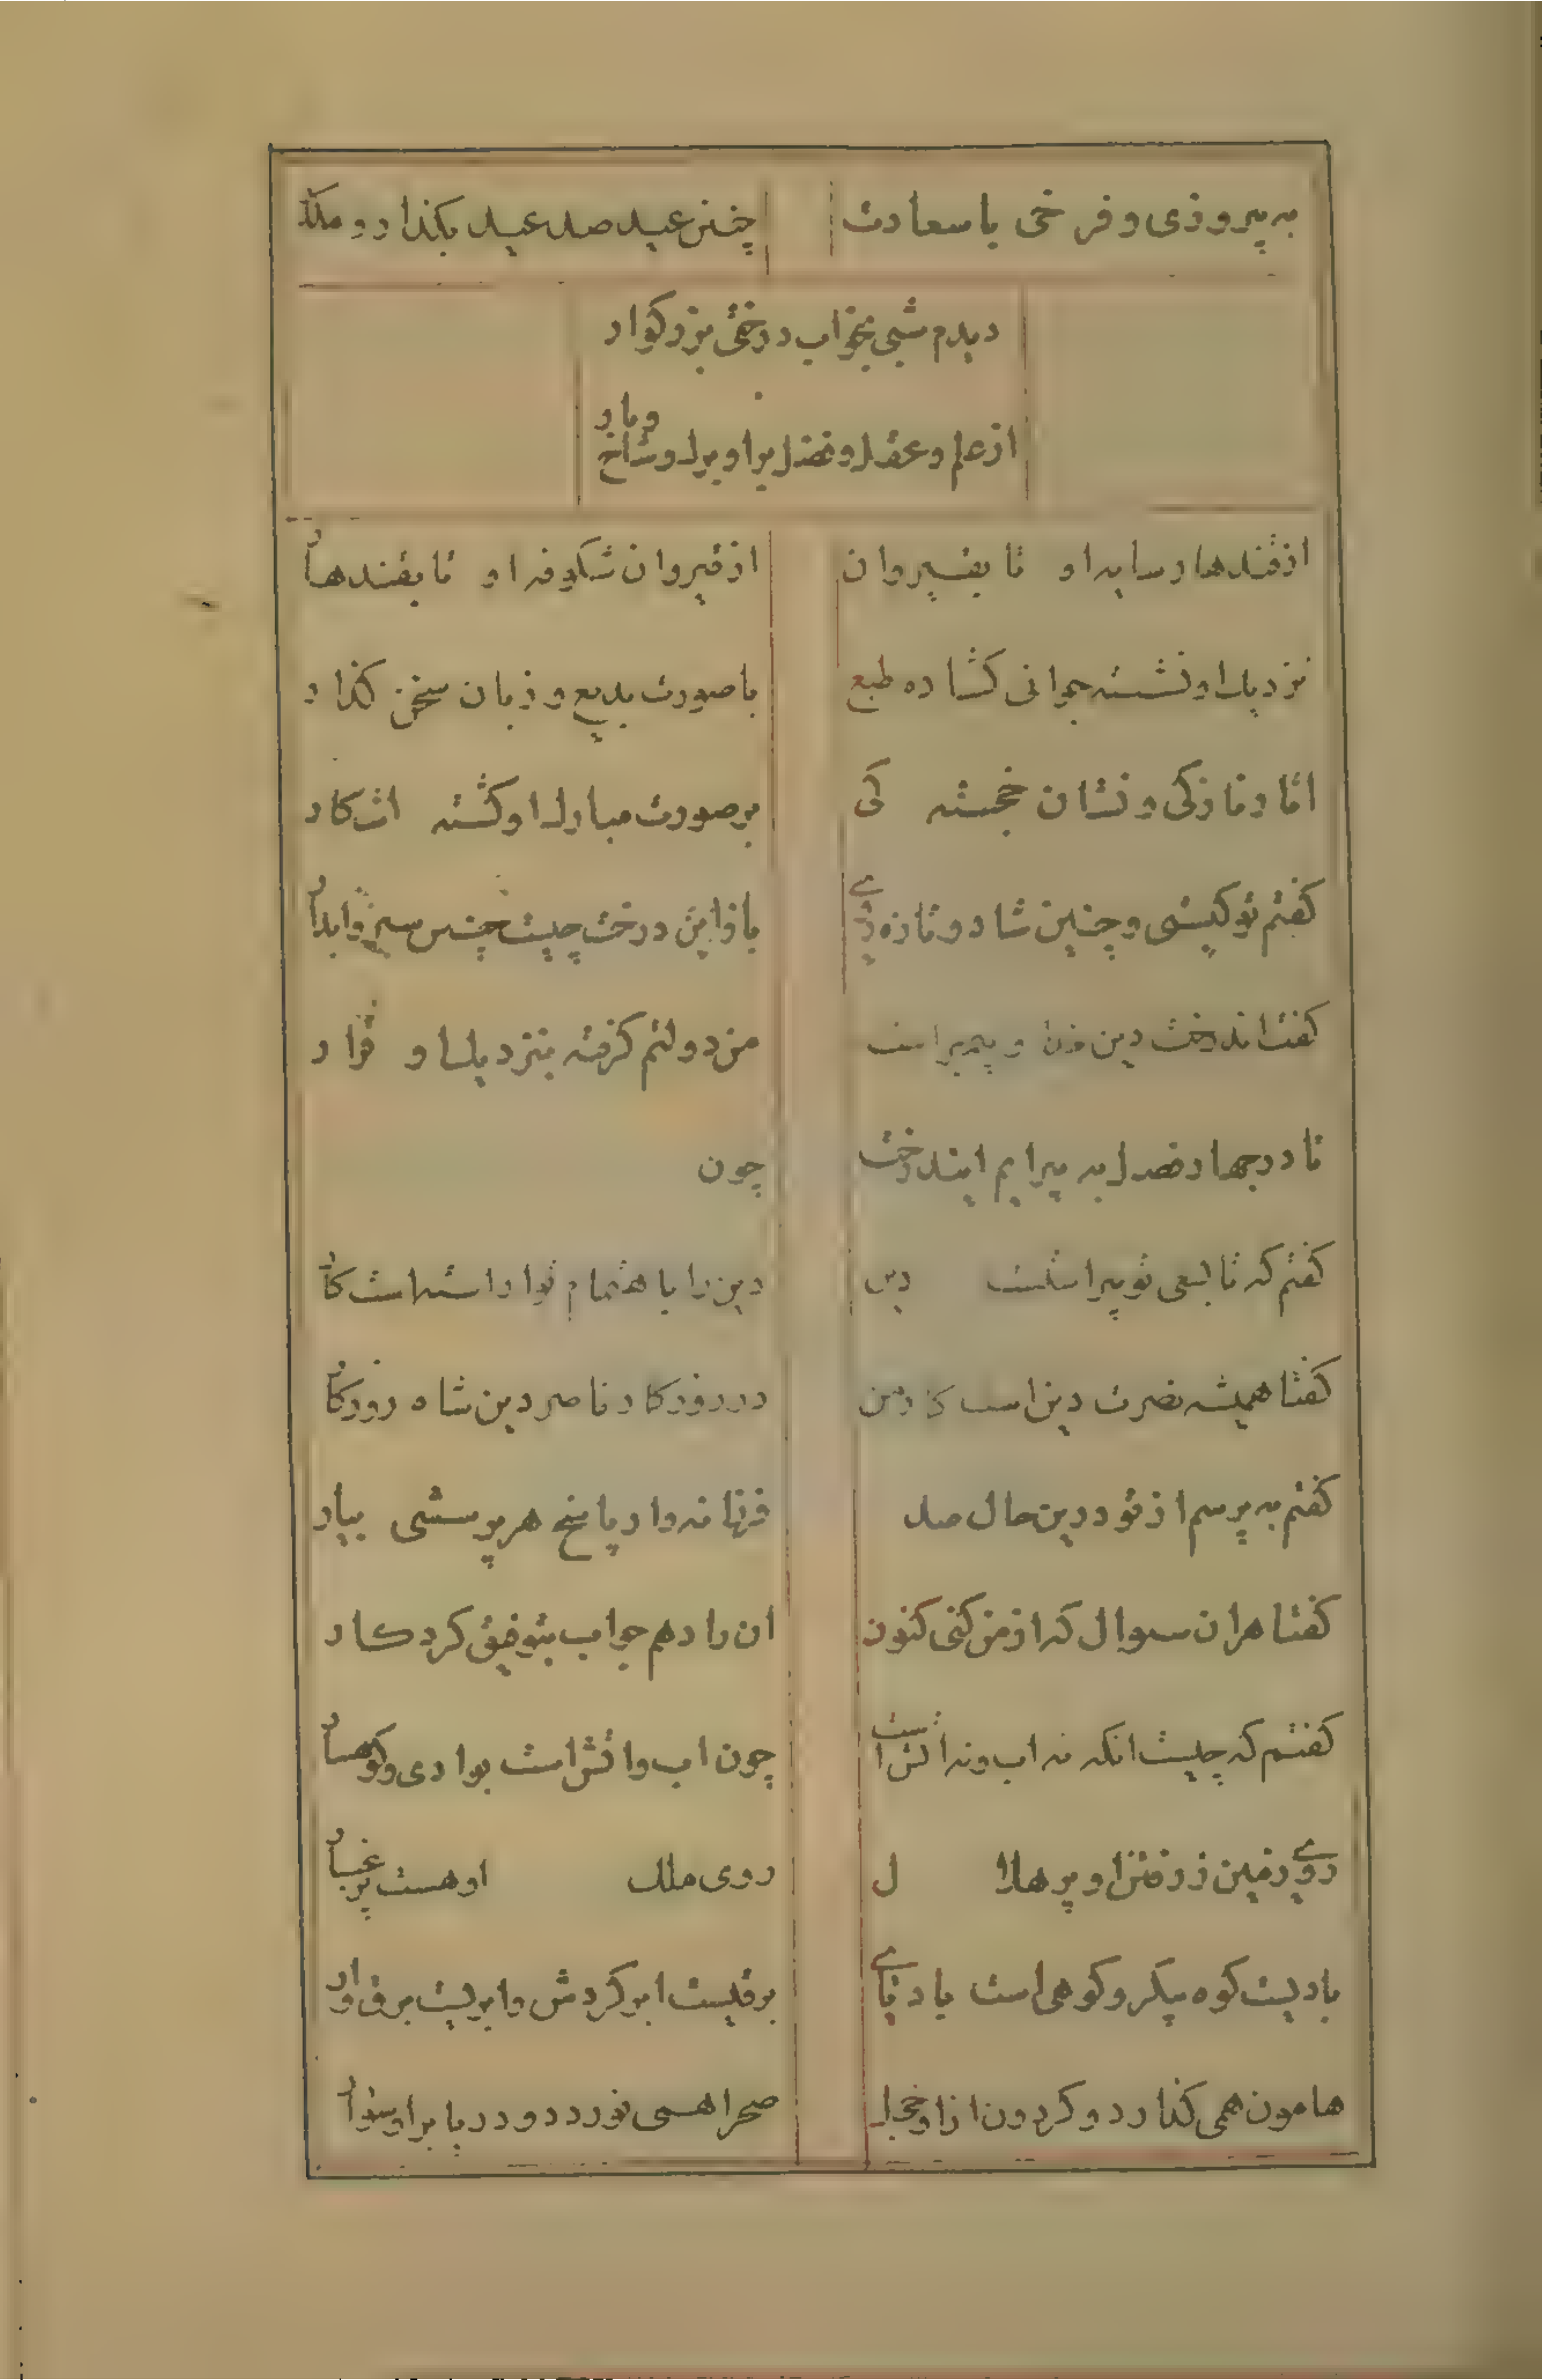 به پیروزی و فرخی با سعادت چنین عید صد عید بکذار و ملک
دیدم شبی بخواب درختی بزرکوار
از علم و عقل و فضل برا و برک و شاخ و بار
از قندهار سایه او تا بقیروان از قیروان شکوفه او تا بقندهار
نزدیک او نشسته جوانی کشاده طبع با صورت بدیع و زبان سخن کذار
اثار نازکی و نشان خجسته کی بر صورت مبارک او کشته اشکار
کفتم تو کیستی و چنین شاد و تازه روی باز این درخت چیست چنین سبز و ابدار
کفت اندرخت دین خدا و پیمبر است من دولتم کرفته بنزدیک او قرار
تا در جهار فصل به پیرایم ایندرخت چون
کفتم که تا بسعی تو پیراسته است دین دین را باهتمام تو اراسته است کار
کفتا همیشه نصرت دین است کار من در روزکار ناصر دین شاه روزکار
کفتم به پرسم از تو درین حال صد فرزانه وار پاسخ هر پرسشی بیار
کفتا هران سوال که از من کنی کنون ان را دهم جواب بتوفیق کردکار
کفتم که چیست انکه نه اب و نه اتش است چون اب و اتش است بوادی و کوهسار
روی زمین ز رفتن او پر هلال روی ملک او هست پر غبار
بادیست کوه پیکر و کوهی است باد پای برقیست ابر کردش و ابریست برق وار
هامون همی کذارد و کردون ازو خجل صحرا همی نوردد و دریا برو سوار